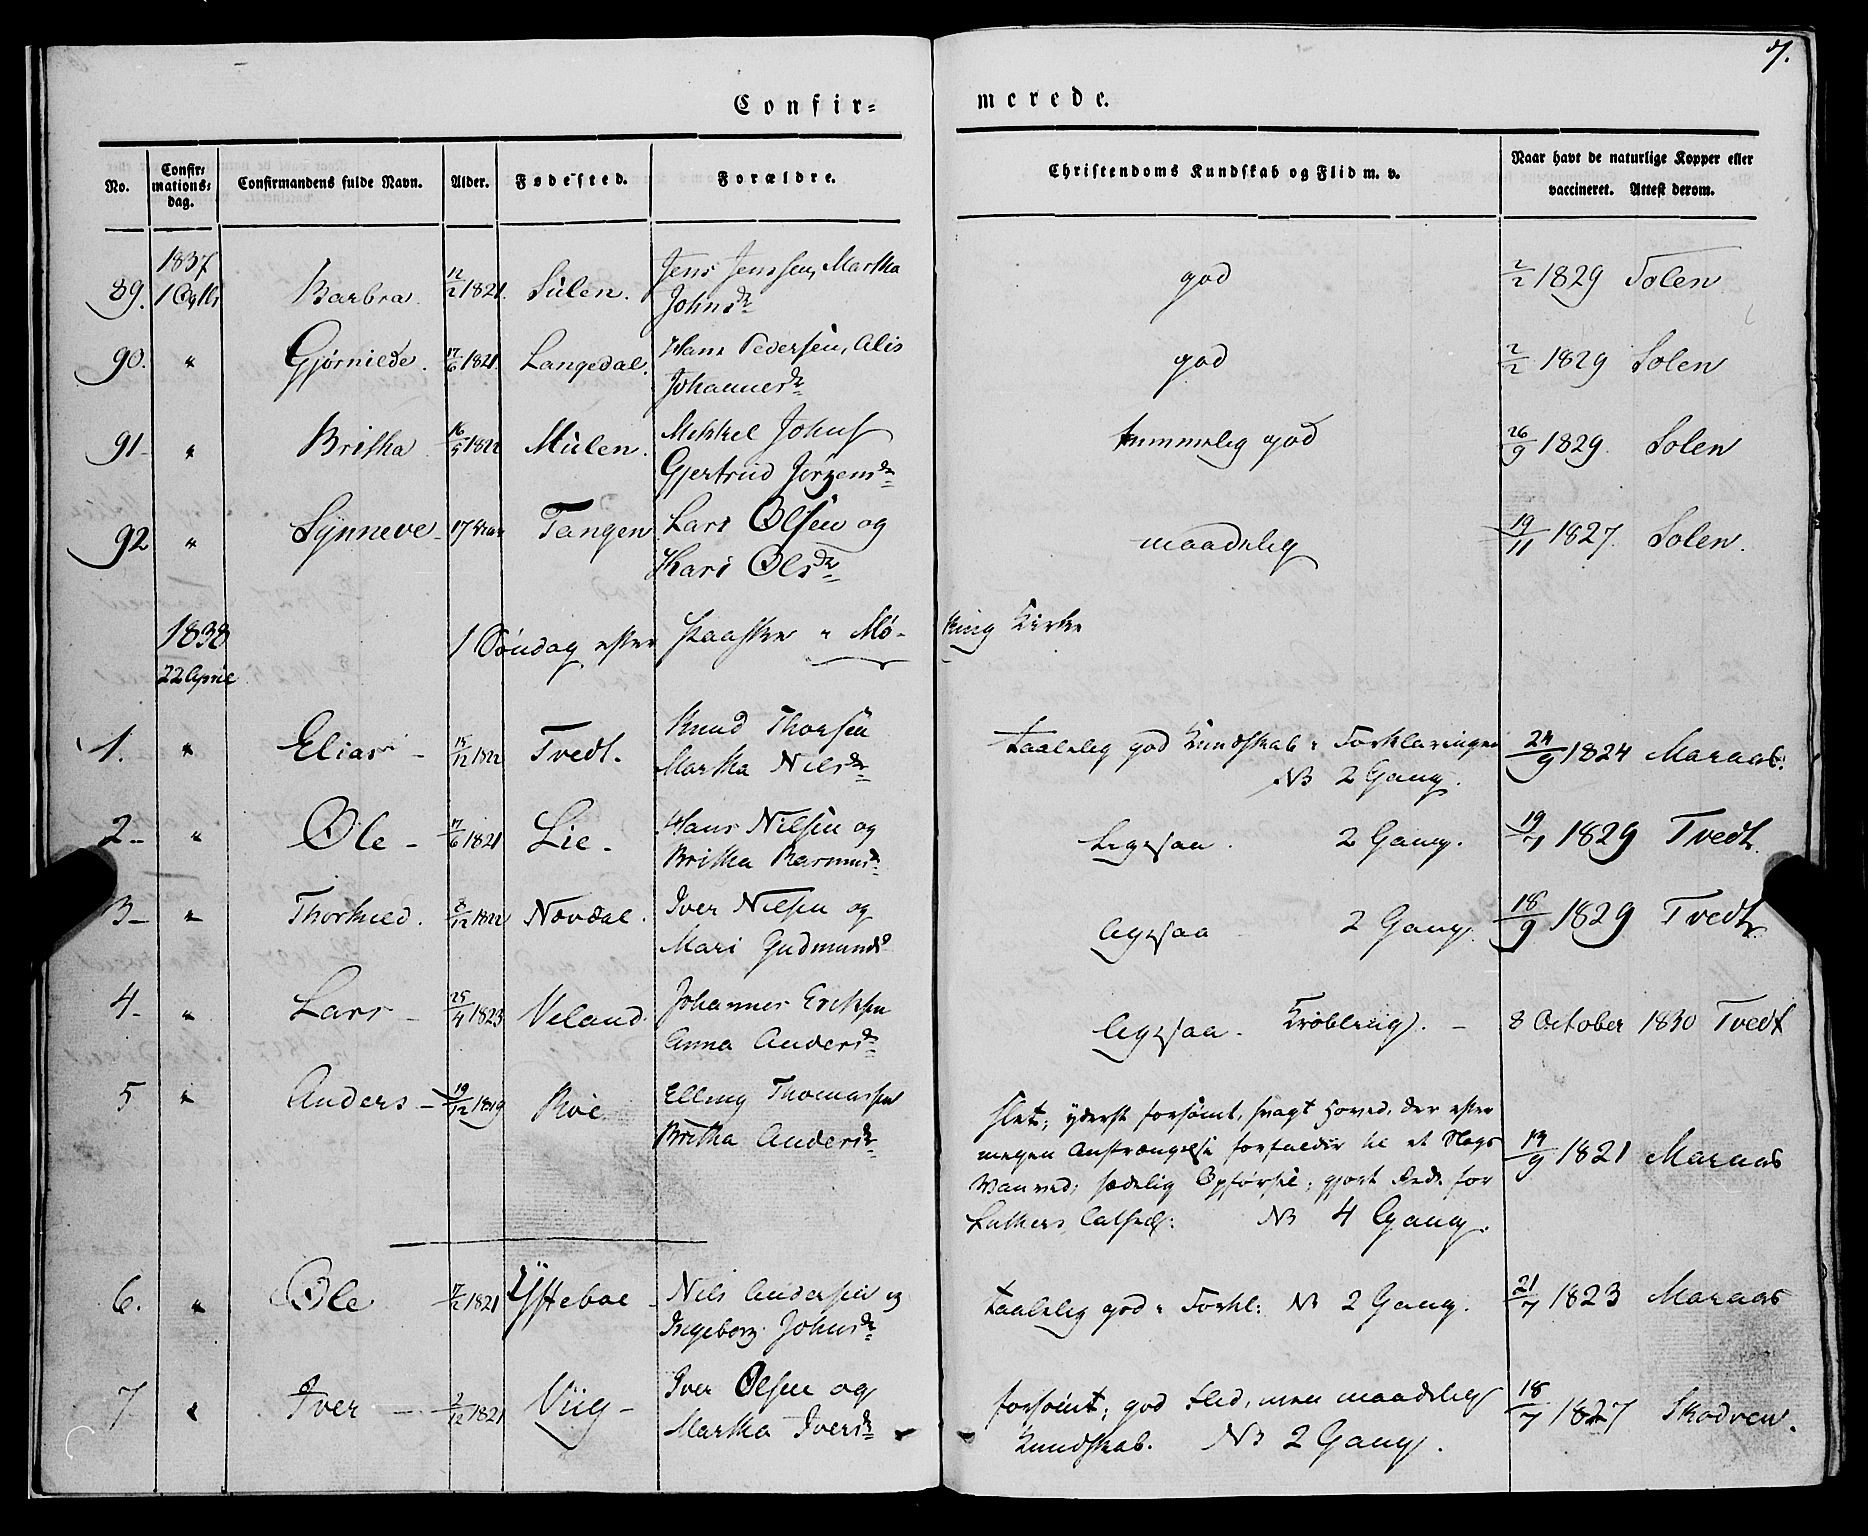 7.
Confir- merede.
No. Confir-mations-dag. Confirmandens fulde Navn. Alder. Fødested. Forældre. Christendoms Kundskab og Flid m. v. Naar havt de naturlige Kopper eller vaccineret. Attest derom.
1837
89. 1 Barbra. 12/2 1821. Sulen. Jens Jenssen, Martha Johnsdr god 2/2 1829 Solen
90. " Gjørnilde. 17/6 1821. Langedal. Hans Pedersen, Alis Johannesdr god 2/2 1829 Solen
91 " Britha 16/5 1822 Mülen. Mikkel Johns Gjertrud Jørgensdr temmelig god 26/9 1829. Solen
92 " Synneve 17 Tangen Lars Olsen og Kari Olsdr maadelig 19/11 1827. Solen.
1838
22 April 1 Søndag efter Paaske i Mø- kirke
1. " Elias 15/12 1822 Tvedt. Knud Thorsen Martha Nilsdr taalelig god Kundskab i Forklaringen NB 2 Gang. 24/9 1824 Maraas.
2 " Ole 17/6 1821 Lie Hans Nilsen og Britha Rasmusdr Ligesaa. 2 Gang. 19/7 1829 Tvedt
3 " Thorkild. 8/12 1822 Novdal. Iver Nilsen og Mari Gudmundsd ligesaa 2 Gang. 18/9 1829 Tvedt
4 " Lars 25/4 1823 Veland. Johannes Eriksen Anna Andersdr ligesaa Krøbling. 8 October 1830 Tvedt
5 " Anders 19/12 1819 Roe Elling Thomassen Britha Andersdr slet; yderst forsømt, svagt Hoved, der efter
megen Anstrængelse forfalder til et Slags
Vanvid; sædelig Opførsel; gjort Rede for
Luthers Cathech: NB 4 Gang. 19/9 1821 Maraas
6. " Ole 17/2 1821 Ystebøe Nils Andersen og Ingeborg Johnsdr taalelig god i Forkl: NB 2 Gang. 21/7 1823 Maraas
7 " Iver 2/12 1821 Viig Iver Olsen og Martha Iversdr forsømt; god Flid, men maadelig Kundskab. NB 2 Gang. 18/7 1827 Skodven.